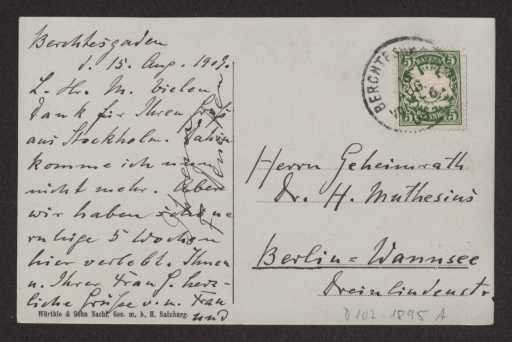 Berchtesgaden
d. 15. Aug. 1909.
L. Hr. M. Vielen
Dank für Ihren Gruß
aus Stockholm. Dahin
komme ich nun
nicht mehr. Aber
wir haben schöne
ruhige 5 Wochen
hier verlebt. Ihnen
u. Ihrer Frau G. herz-
liche Grüße v. m. Frau
und
Würthle & Sohn Nachf. Ges. m. b. H. Salzburg.
BERCHTESGADEN
5 5
BAYERN
Herrn Geheimrath
Dr. H. Muthesius
Berlin=Wannsee
Dreilindenstr.
D 102-1895 A